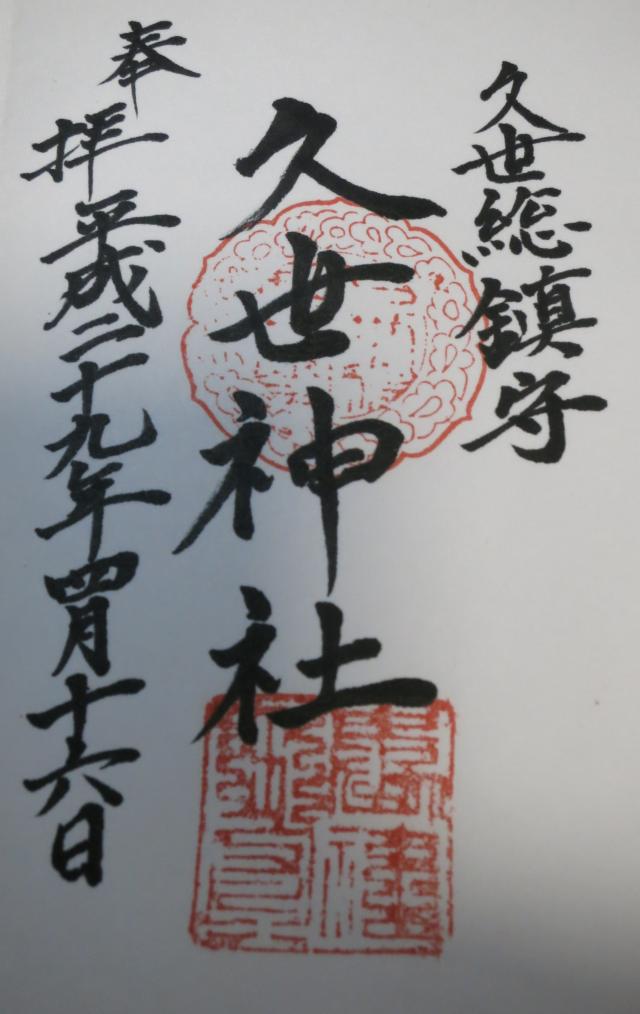 久世総鎮守
久世神社
奉拝平成二十九年四月十六日